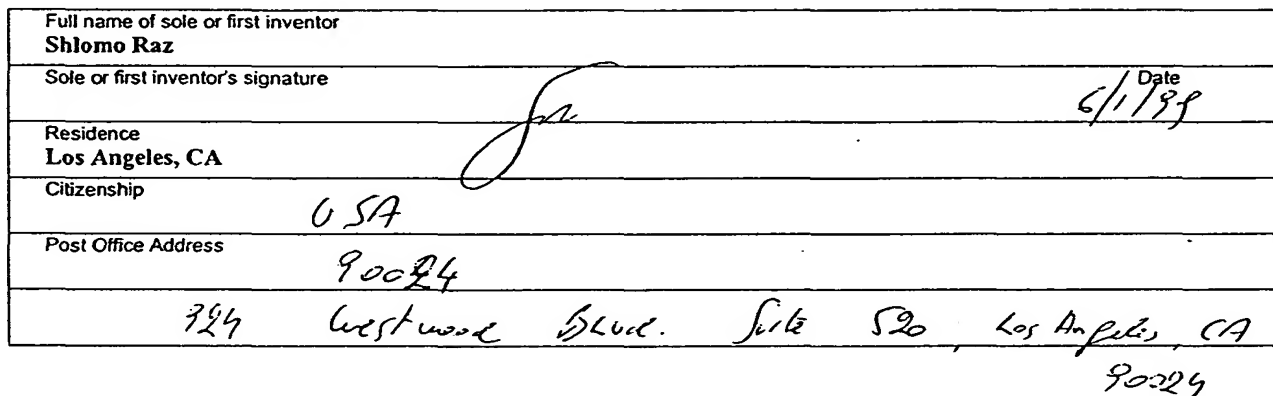 Full name of sole or first inventor
Shlomo Raz
Sole or first inventor's signature
Date
6/1/99
Residence
Los Angeles, CA
Citizenship
USA
Post Office Address
90024
924 Westwood Blvd. Suite 520, Los Angeles, CA
90024